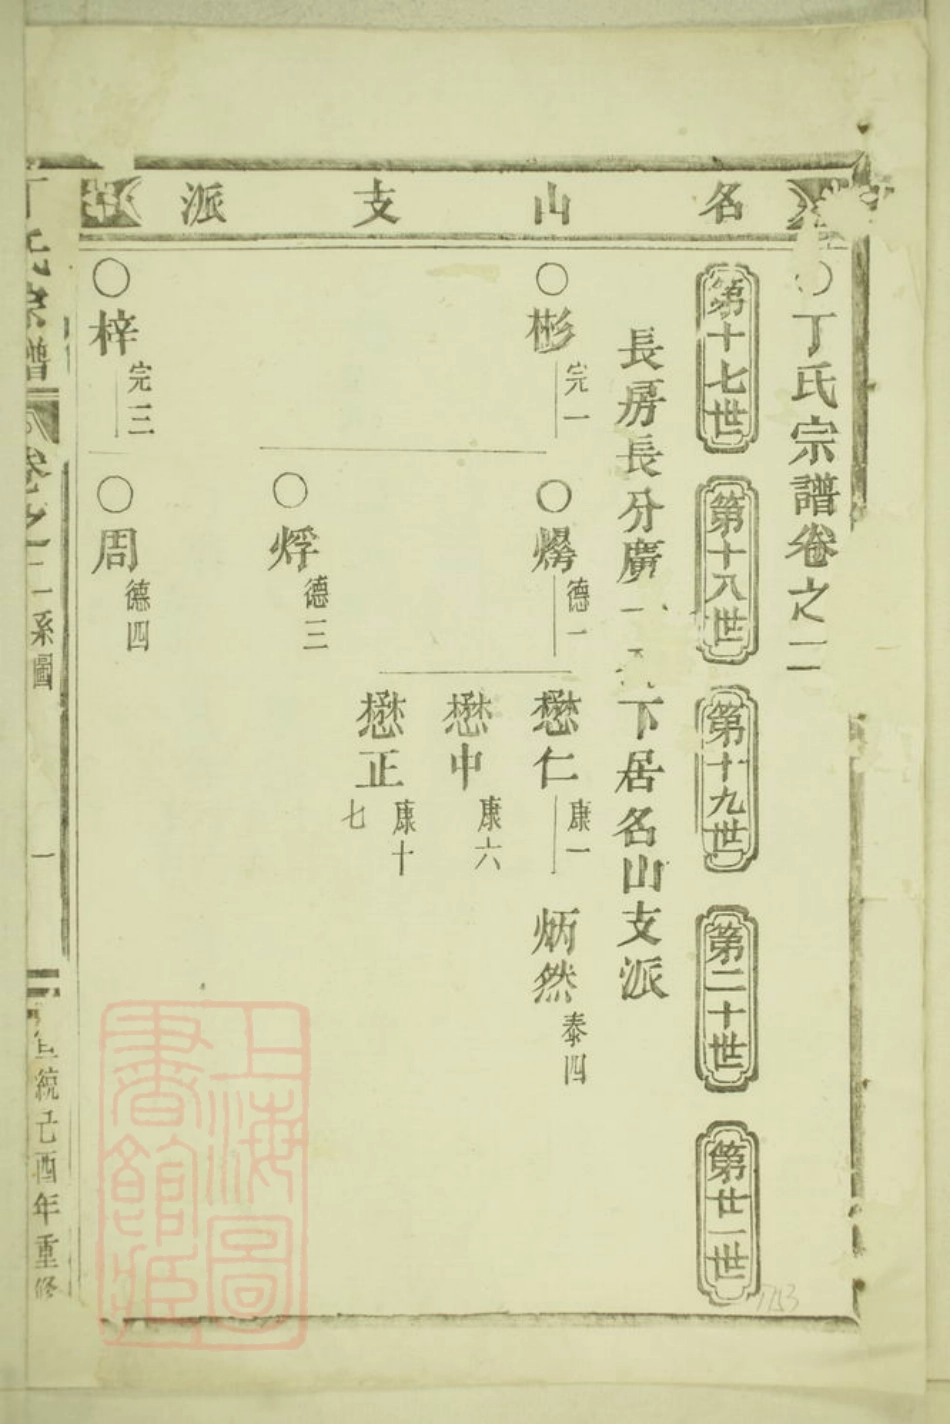 名山支派
○丁氏宗譜卷之二
第十七世
第十八世
第十九世
第二十世
第廿一世
長房長分廣一下居名山支派
○彬
完一
○燐
德一
懋仁
康一
炳然
泰四
懋中
康六
懋正
康十七
○烰
德三
○梓
完三
○周
德四
丁氏宗譜
卷之二系圖
一
宣統己酉年重修
上海圖書館藏
1753